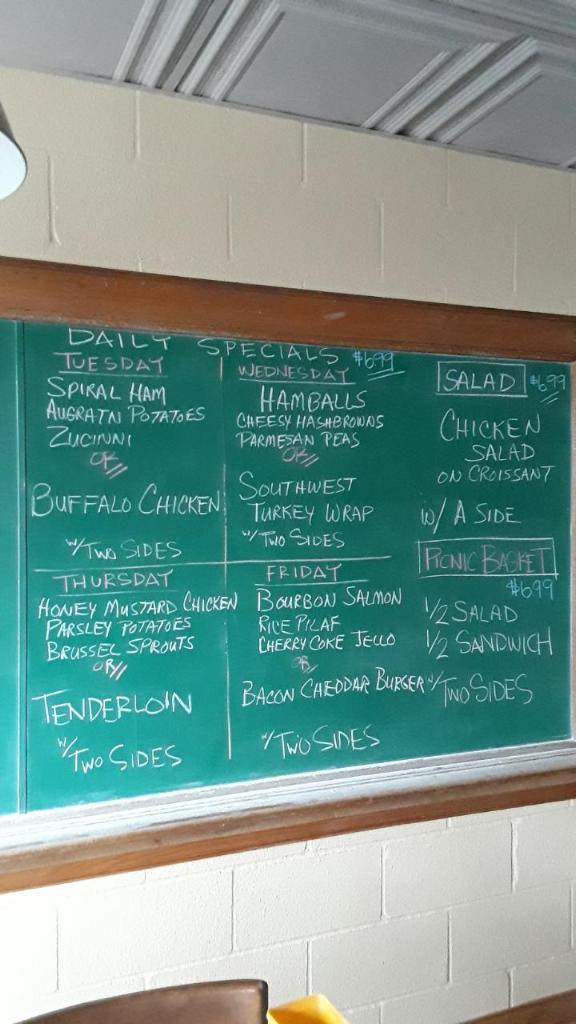 DAILY SPECIALS $6.99
TUESDAY
SPIRAL HAM
AUGRATN POTATOES
ZUCINNI
OR
BUFFALO CHICKEN
W/ TWO SIDES
WEDNESDAY
HAMBALLS
CHEESY HASHBROWNS
PARMESAN PEAS
OR
SOUTHWEST
TURKEY WRAP
W/ TWO SIDES
THURSDAY
HONEY MUSTARD CHICKEN
PARSLEY POTATOES
BRUSSEL SPROUTS
OR
TENDERLOIN
W/ TWO SIDES
FRIDAY
BOURBON SALMON
RICE PILAF
CHERRY COKE JELLO
OR
BACON CHEDDAR BURGER
W/ TWO SIDES
SALAD $6.99
CHICKEN
SALAD
ON CROISSANT
W/ A SIDE
PICNIC BASKET
$6.99
1/2 SALAD
1/2 SANDWICH
W/ TWO SIDES